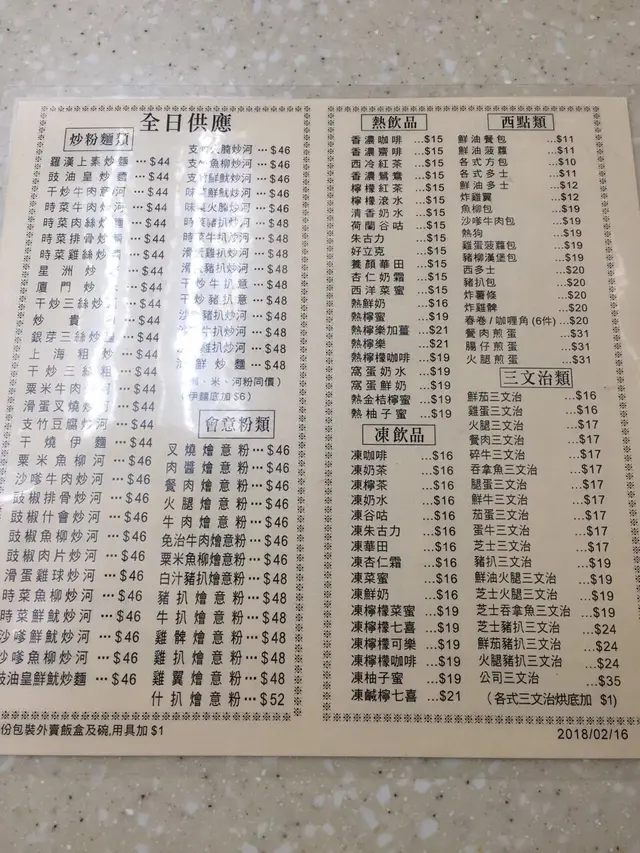 全日供應
炒粉麵類
羅漢上素炒麵…$44
豉油皇炒麵…$44
干炒牛肉意河…$44
時菜牛肉炒河…$44
時菜肉絲炒麵…$44
時菜排骨炒麵…$44
時菜雞絲炒麵…$44
星洲炒…$44
廈門炒…$44
干炒三絲炒…$44
炒貴…$44
銀芽三絲炒…$44
上海粗炒…$44
干炒三絲粗…$44
粟米牛肉…$44
滑蛋叉燒炒…$44
支竹豆腐炒河…$44
干燒伊麵…$44
粟米魚柳河…$46
沙嗲牛肉炒河…$46
豉椒排骨炒河…$46
豉椒什會炒河…$46
豉椒魚柳炒河…$46
豉椒肉片炒河…$46
滑蛋雞球炒河…$46
時菜魚柳炒河…$46
時菜鮮魷炒河…$46
沙嗲鮮魷炒河…$46
沙嗲魚柳炒河…$46
豉油皇鮮魷炒麵…$46
支竹火腩炒河…$46
支竹魚柳炒河…$46
支竹鮮魷炒河…$46
味菜鮮魷炒河…$46
味菜火腩炒河…$46
時菜豬扒炒河…$48
時菜牛扒炒河…$48
滑蛋雞扒炒河…$48
滑蛋豬扒炒河…$48
干炒牛扒意…$48
干炒豬扒意…$48
豬扒炒河…$48
扒炒河…$48
雞扒炒河…$48
鮮炒麵…$48
米、河粉同價)
伊麵底加 $6)
會意粉類
叉燒燴意粉…$46
肉醬燴意粉…$46
餐肉燴意粉…$46
火腿燴意粉…$46
牛肉燴意粉…$46
免治牛肉燴意粉…$46
粟米魚柳燴意粉…$46
白汁豬扒燴意粉…$48
豬扒燴意粉…$48
牛扒燴意粉…$48
雞髀燴意粉…$48
雞扒燴意粉…$48
雞翼燴意粉…$48
什扒燴意粉…$52
熱飲品
香濃咖啡…$15
香濃齋啡…$15
西冷紅茶…$15
香濃鴛鴦…$15
檸檬紅茶…$15
檸檬滾水…$15
清香奶水…$15
荷蘭谷咕…$15
朱古力…$15
好立克…$15
養顏華田…$15
杏仁奶霜…$15
西洋菜蜜…$15
熱鮮奶…$16
熱檸蜜…$19
熱檸樂加薑…$21
熱檸樂…$21
熱檸檬咖啡…$19
窩蛋奶水…$19
窩蛋鮮奶…$19
熱金桔檸蜜…$19
熱柚子蜜…$19
凍飲品
凍咖啡…$16
凍奶茶…$16
凍檸茶…$16
凍奶水…$16
凍谷咕…$16
凍朱古力…$16
凍華田…$16
凍杏仁霜…$16
凍菜蜜…$16
凍鮮奶…$16
凍檸檬菜蜜…$19
凍檸檬七喜…$19
凍檸檬可樂…$19
凍檸檬咖啡…$19
凍柚子蜜…$19
凍鹹檸七喜…$21
西點類
鮮油餐包…$11
鮮油菠蘿…$11
各式方包…$10
各式多士…$11
鮮油多士…$12
炸雞翼…$12
魚柳包…$19
沙嗲牛肉包…$19
熱狗…$19
雞蛋菠蘿包…$19
豬柳漢堡包…$19
西多士…$20
豬扒包…$20
炸薯條…$20
炸雞髀…$20
春卷/咖喱角(6件)…$20
餐肉煎蛋…$31
腸仔煎蛋…$31
火腿煎蛋…$31
三文治類
鮮茄三文治…$16
雞蛋三文治…$16
火腿三文治…$17
餐肉三文治…$17
碎牛三文治…$17
吞拿魚三文治…$17
腿蛋三文治…$17
鮮牛三文治…$17
茄蛋三文治…$17
蛋牛三文治…$17
芝士三文治…$17
豬扒三文治…$19
鮮油火腿三文治…$19
芝士火腿三文治…$19
芝士吞拿魚三文治…$19
芝士豬扒三文治…$24
鮮茄豬扒三文治…$24
火腿豬扒三文治…$24
公司三文治…$35
(各式三文治烘底加 $1)
份包裝外賣飯盒及碗,用具加 $1
2018/02/16